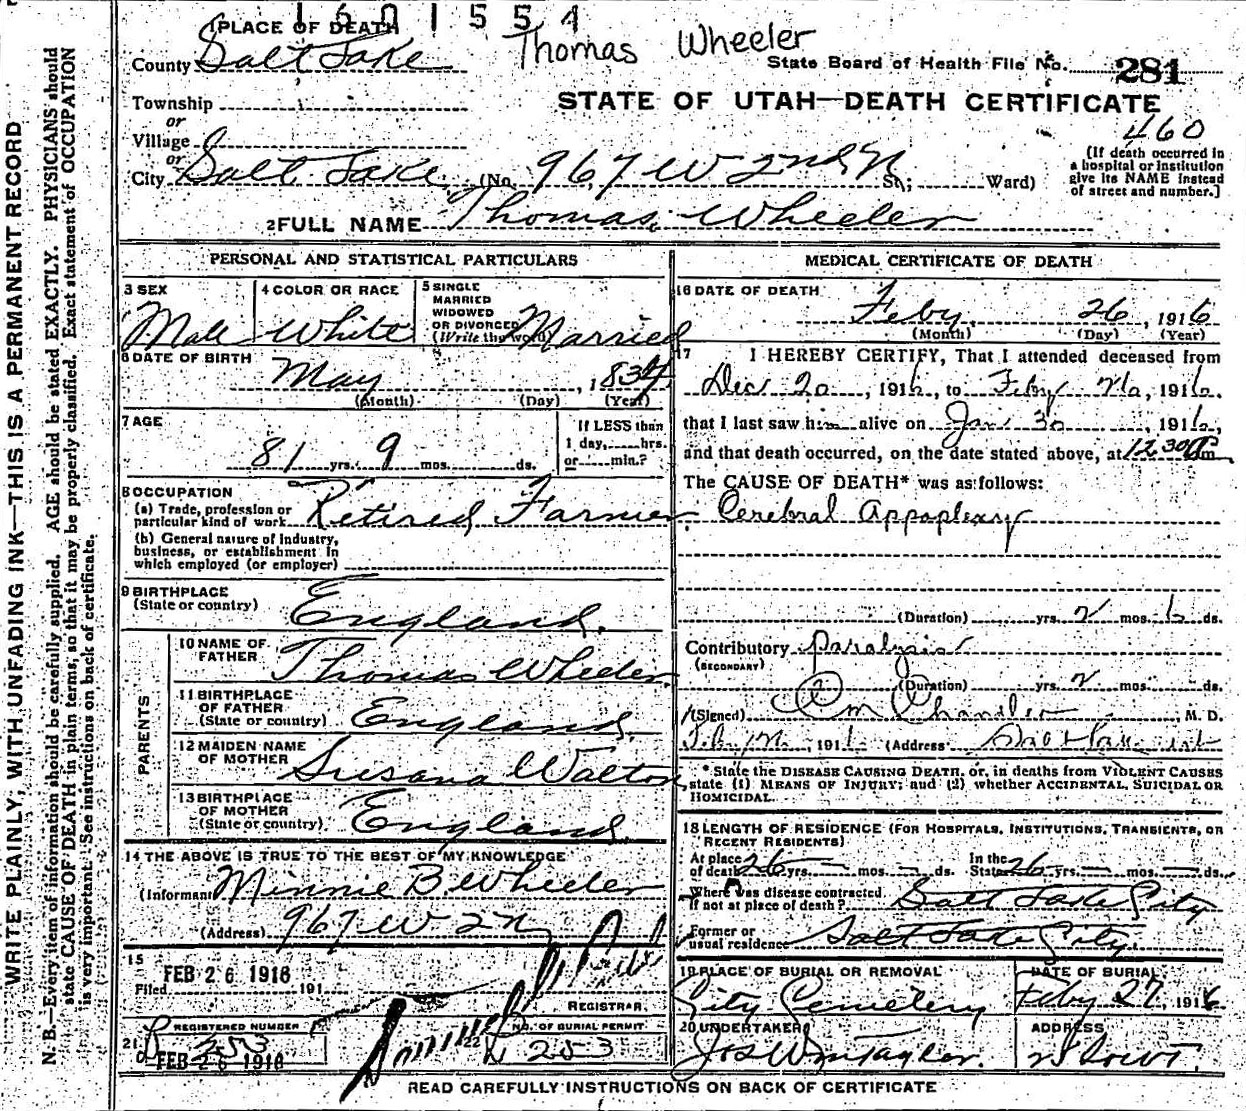 1601554
1 PLACE OF DEATH
Thomas Wheeler
County Salt Lake
State Board of Health File No. 281
Township
or
STATE OF UTAH—DEATH CERTIFICATE
Village
or
460
City Salt Lake (No. 967 W 2nd N St; Ward)
(If death occurred in
a hospital or institution
give its NAME instead
of street and number.]
2 FULL NAME Thomas Wheeler
PERSONAL AND STATISTICAL PARTICULARS
3 SEX
Male
4 COLOR OR RACE
White
5 SINGLE
MARRIED
WIDOWED
OR DIVORCED
(Write the word)
Married
6 DATE OF BIRTH
May, 1834
(Month) (Day) (Year)
7 AGE
81 yrs. 9 mos. ds.
If LESS than
1 day, hrs.
or min.?
8 OCCUPATION
(a) Trade, profession or
particular kind of work Retired Farmer
(b) General nature of Industry,
business, or establishment in
which employed (or employer)
9 BIRTHPLACE
(State or country) England.
PARENTS
10 NAME OF
FATHER Thomas Wheeler.
11 BIRTHPLACE
OF FATHER
(State or country) England.
12 MAIDEN NAME
OF MOTHER Susana Walton
13 BIRTHPLACE
OF MOTHER
(State or country) England.
14 THE ABOVE IS TRUE TO THE BEST OF MY KNOWLEDGE
(Informant Minnie B Wheeler
(Address) 967 W 2 N
15
Filed FEB 26 1916 191
REGISTRAR
21 REGISTERED NUMBER
253
FEB 26 1916
NO. OF BURIAL PERMIT
253
MEDICAL CERTIFICATE OF DEATH
16 DATE OF DEATH
Feby 26, 1916
(Month) (Day) (Year)
17 I HEREBY CERTIFY, That I attended deceased from
Dec 20, 1916, to Feby 26, 1916.
that I last saw him alive on Jan 30, 1916,
and that death occurred, on the date stated above, at 12.30 P m.
The CAUSE OF DEATH* was as follows:
Cerebral Appoplexy
(Duration) yrs. 2 mos. 6 ds.
Contributory Paralysis
(SECONDARY)
(Duration) yrs. 2 mos. ds.
(Signed) C M Chandler, M. D.
191 (Address
* State the DISEASE CAUSING DEATH, or, in deaths from VIOLENT CAUSES
state (1) MEANS OF INJURY; and (2) whether ACCIDENTAL, SUICIDAL OR
HOMICIDAL.
18 LENGTH OF RESIDENCE (FOR HOSPITALS, INSTITUTIONS, TRANSIENTS, OR
RECENT RESIDENTS)
At place
of death 26 yrs. — mos. — ds.
In the
State 26 yrs. — mos. — ds.
Where was disease contracted
If not at place of death? Salt Lake City
Former or
usual residence Salt Lake City.
19 PLACE OF BURIAL OR REMOVAL
City Cemetery
DATE OF BURIAL
Feby 27, 1916
20 UNDERTAKER
Jos Wm Taylor.
ADDRESS
READ CAREFULLY INSTRUCTIONS ON BACK OF CERTIFICATE
WRITE PLAINLY, WITH UNFADING INK—THIS IS A PERMANENT RECORD
N. B.—Every item of information should be carefully supplied. AGE should be stated EXACTLY. PHYSICIANS should
state CAUSE OF DEATH in plain terms, so that it may be properly classified. Exact statement of OCCUPATION
is very important. See instructions on back of certificate.